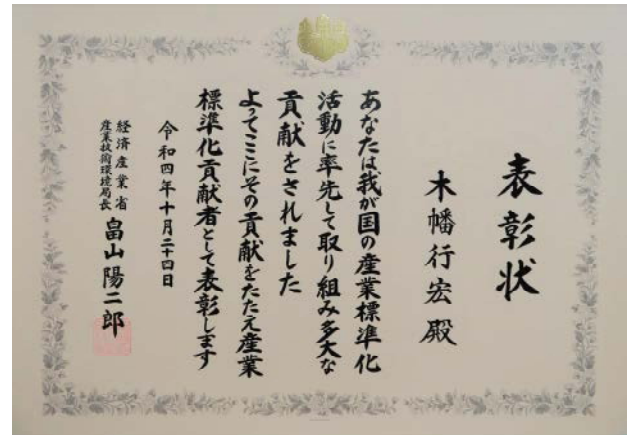 表彰状
木幡行宏殿
あなたは我が国の産業標準化
活動に率先して取り組み多大な
貢献をされました
よってここにその貢献をたたえ産業
標準化貢献者として表彰します
令和四年十月二十四日
経済産業省
産業技術環境局長
畠山陽二郎